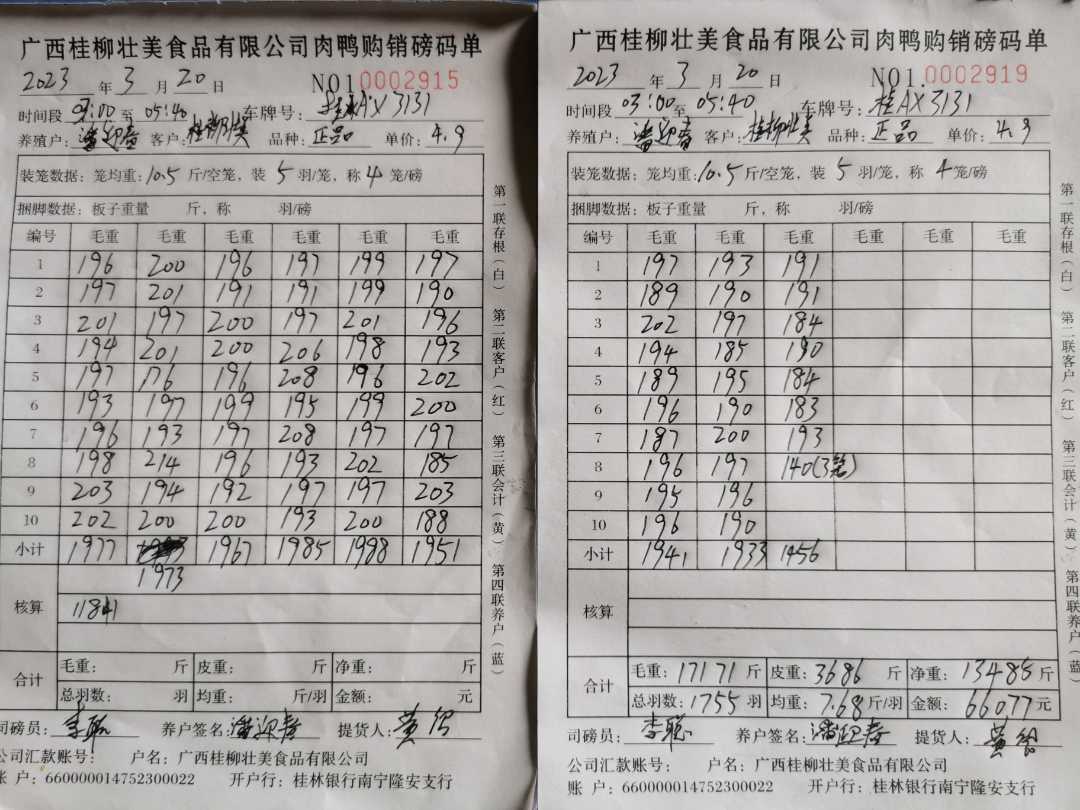 广西桂柳壮美食品有限公司肉鸭购销磅码单
2023 年 3 月 20 日 NO1 0002915
时间段 03:00 至 05:40 车牌号: 桂AX3131
养殖户: 潘迎春 客户: 桂柳壮美 品种: 正品 单价: 4.9
装笼数据: 笼均重: 10.5 斤/空笼, 装 5 羽/笼, 称 4 笼/磅
捆脚数据: 板子重量 斤, 称 羽/磅
编号 毛重 毛重 毛重 毛重 毛重 毛重
1 196 200 196 197 199 197
2 197 201 191 191 199 190
3 201 197 200 197 201 196
4 194 201 200 206 198 193
5 197 176 196 208 196 202
6 193 197 199 195 199 200
7 196 193 197 208 197 197
8 198 214 196 193 202 185
9 203 194 192 197 197 203
10 202 200 200 193 200 188
小计 1977 1967 1985 1988 1951
1973
核算 11841
合计 毛重: 斤 皮重: 斤 净重: 斤
总羽数: 羽 均重: 斤/羽 金额: 元
司磅员: 李聪 养户签名: 潘迎春 提货人:
公司汇款账号: 户名: 广西桂柳壮美食品有限公司
账 户: 660000014752300022 开户行: 桂林银行南宁隆安支行
第一联存根(白) 第二联客户(红) 第三联会计(黄) 第四联养户(蓝)
广西桂柳壮美食品有限公司肉鸭购销磅码单
2023 年 3 月 20 日 NO1. 0002919
时间段 03:00 至 05:40 车牌号: 桂AX3131
养殖户: 潘迎春 客户: 桂柳壮美 品种: 正品 单价: 4.9
装笼数据: 笼均重: 10.5 斤/空笼, 装 5 羽/笼, 称 4 笼/磅
捆脚数据: 板子重量 斤, 称 羽/磅
编号 毛重 毛重 毛重 毛重 毛重 毛重
1 197 193 191
2 189 190 191
3 202 197 184
4 194 185 190
5 189 195 184
6 196 190 183
7 187 200 193
8 196 197 140(3笼)
9 195 196
10 196 190
小计 1941 1933 1456
核算
合计 毛重: 17171 斤 皮重: 3686 斤 净重: 13485 斤
总羽数: 1755 羽 均重: 7.68 斤/羽 金额: 66077 元
司磅员: 李聪 养户签名: 潘迎春 提货人:
公司汇款账号: 户名: 广西桂柳壮美食品有限公司
账 户: 660000014752300022 开户行: 桂林银行南宁隆安支行
第一联存根(白) 第二联客户(红) 第三联会计(黄) 第四联养户(蓝)